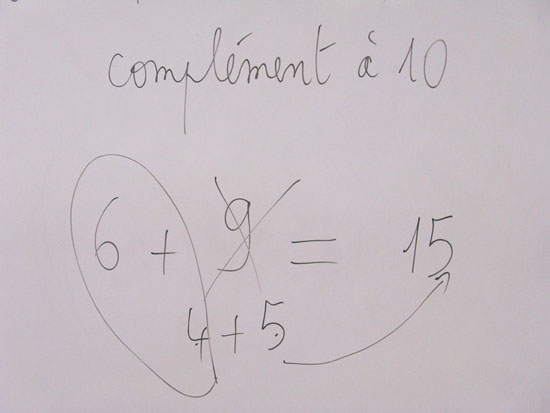 complément à 10
6 + 9 = 15
4 + 5